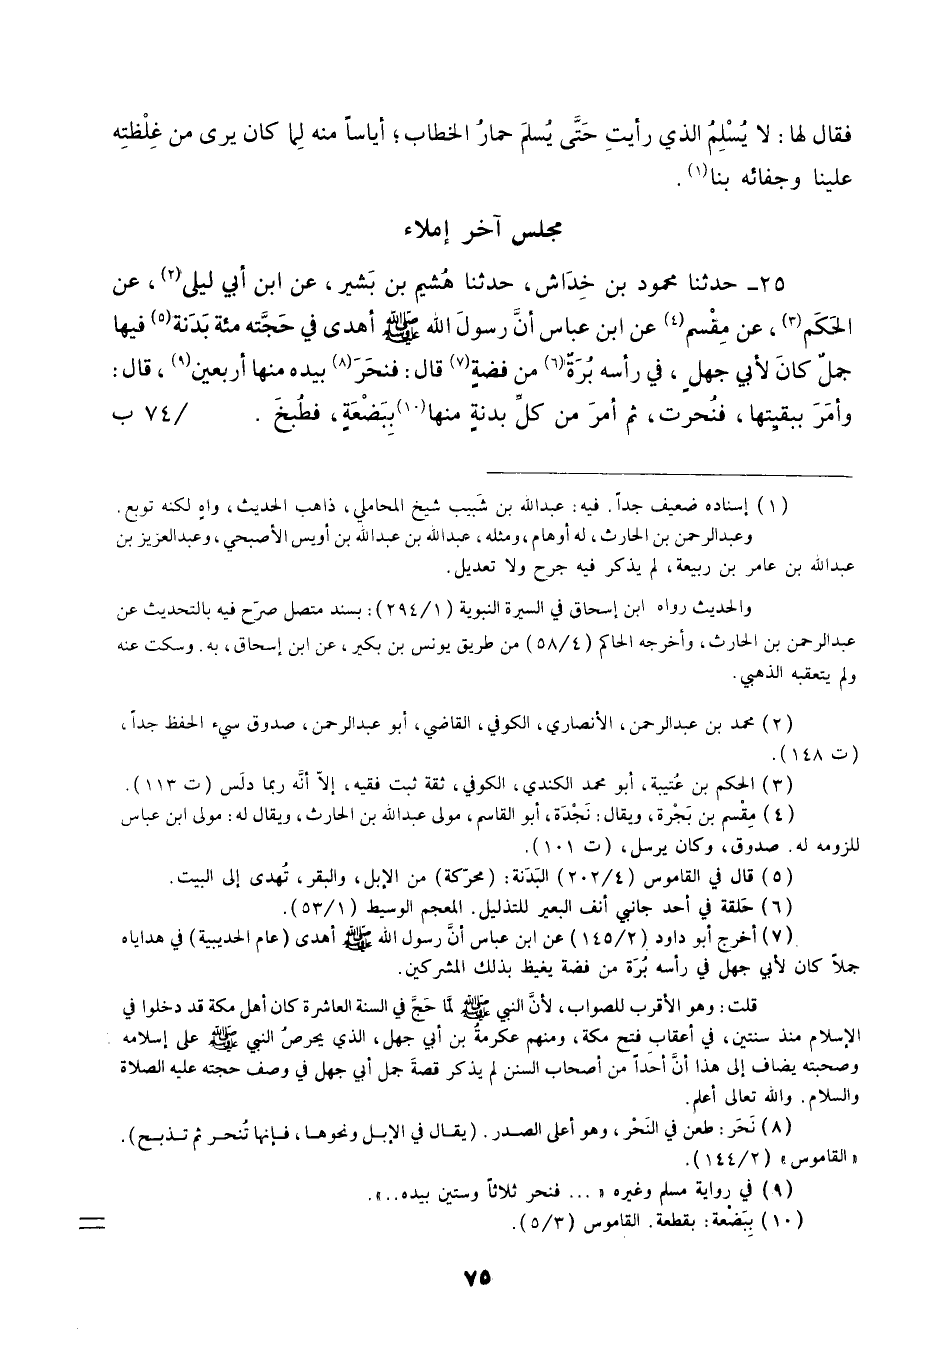 فقال لها : لا يُسْلِمُ الذي رأيتِ حَتَّى يُسلمَ حمارُ الخطاب ؛ أياساً منه لِما كان يرى من غِلْظتِه
علينا وجفائه بنا(١) .
مجلس آخر إملاء
٢٥ـ حدثنا محمود بن خِدَاش ، حدثنا هُشيم بن بَشير ، عن ابن أبي ليلى(٢) ، عن
الحَكَم(٣) ، عن مِقْسم(٤) عن ابن عباس أنَّ رسولَ الله ﷺ أهدى في حَجَّته مئة بَدَنة(٥) فيها
جملٌ كانَ لأبي جهلٍ ، في رأسه بُرَةٌ(٦) من فضةٍ(٧) قال : فنحَرَ(٨) بيده منها أربعين(٩) ، قال :
وأمَرَ ببقيتِها ، فنُحرت ، ثم أمرَ من كلِّ بدنةٍ منها(١٠) بِبَضْعَةٍ ، فطُبخَ . /٧٤ ب
(١) إسناده ضعيف جداً . فيه : عبدالله بن شَبيب شيخ المحاملي ، ذاهب الحديث ، واهٍ لكنه توبع .
وعبدالرحمن بن الحارث ، له أوهام ، ومثله ، عبدالله بن عبدالله بن أويس الأصبحي ، وعبدالعزيز بن
عبدالله بن عامر بن ربيعة ، لم يذكر فيه جرح ولا تعديل .
والحديث رواه ابن إسحاق في السيرة النبوية (٢٩٤/١) : بسند متصل صرّح فيه بالتحديث عن
عبدالرحمن بن الحارث ، وأخرجه الحاكم (٥٨/٤) من طريق يونس بن بكير ، عن ابن إسحاق ، به . وسكت عنه
ولم يتعقبه الذهبي .
(٢) محمد بن عبدالرحمن ، الأنصاري ، الكوفي ، القاضي ، أبو عبدالرحمن ، صدوق سيء الحفظ جداً ،
(ت ١٤٨) .
(٣) الحكم بن عُتيبة ، أبو محمد الكندي ، الكوفي ، ثقة ثبت فقيه ، إلاّ أنَّه ربما دلَس (ت ١١٣) .
(٤) مِقْسم بن بَجْرة ، ويقال : نَجْدَة ، أبو القاسم ، مولى عبدالله بن الحارث ، ويقال له : مولى ابن عباس
للزومه له . صدوق ، وكان يرسل ، (ت ١٠١) .
(٥) قال في القاموس (٢٠٢/٤) البَدَنة : (محرّكة) من الإبل ، والبقر ، تُهدى إلى البيت .
(٦) حَلقة في أحد جانبي أنف البعير للتذليل . المعجم الوسيط (٥٣/١) .
(٧) أخرج أبو داود (١٤٥/٢) عن ابن عباس أنَّ رسول الله ﷺ أهدى (عام الحديبية) في هداياه
جملاً كان لأبي جهل في رأسه بُرَة من فضة يغيظ بذلك المشركين .
قلت : وهو الأقرب للصواب ، لأنَّ النبي ﷺ لمَّا حَجَّ في السنة العاشرة كان أهل مكة قد دخلوا في
الإسلام منذ سنتين ، في أعقاب فتح مكة ، ومنهم عكرمةُ بن أبي جهل ، الذي يحرصُ النبي ﷺ على إسلامه
وصحبته يضاف إلى هذا أنَّ أحداً من أصحاب السنن لم يذكر قصةَ جمل أبي جهل في وصف حجته عليه الصلاة
والسلام . والله تعالى أعلم .
(٨) نَحَر : طعن في النَحْر ، وهو أعلى الصدر . (يقال في الإبل ونحوها ، فإنها تُنحر ثم تذبح) .
« القاموس » (١٤٤/٢) .
(٩) في رواية مسلم وغيره « ... فنحر ثلاثاً وستين بيده .. » .
(١٠) بِبَضْعة : بقطعة . القاموس (٥/٣) .
=
٧٥